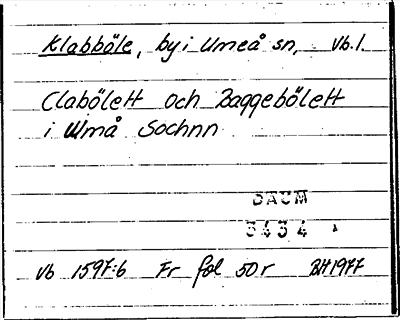 Klabböle, by i Umeå sn, Vb.l.
Clabölett och Baggebölett
i Umå Sochnn
DAUM
3434
Vb 1597:6 Fr fol 50r BH1977